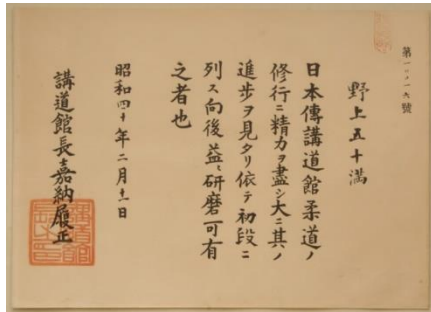 野上五十満
日本傳講道館柔道ノ
修行ニ精力ヲ盡シ大ニ其ノ
進步ヲ見タリ依テ初段ニ
列ス向後益々研磨可有
之者也
昭和四十年二月十一日
講道館長嘉納履正